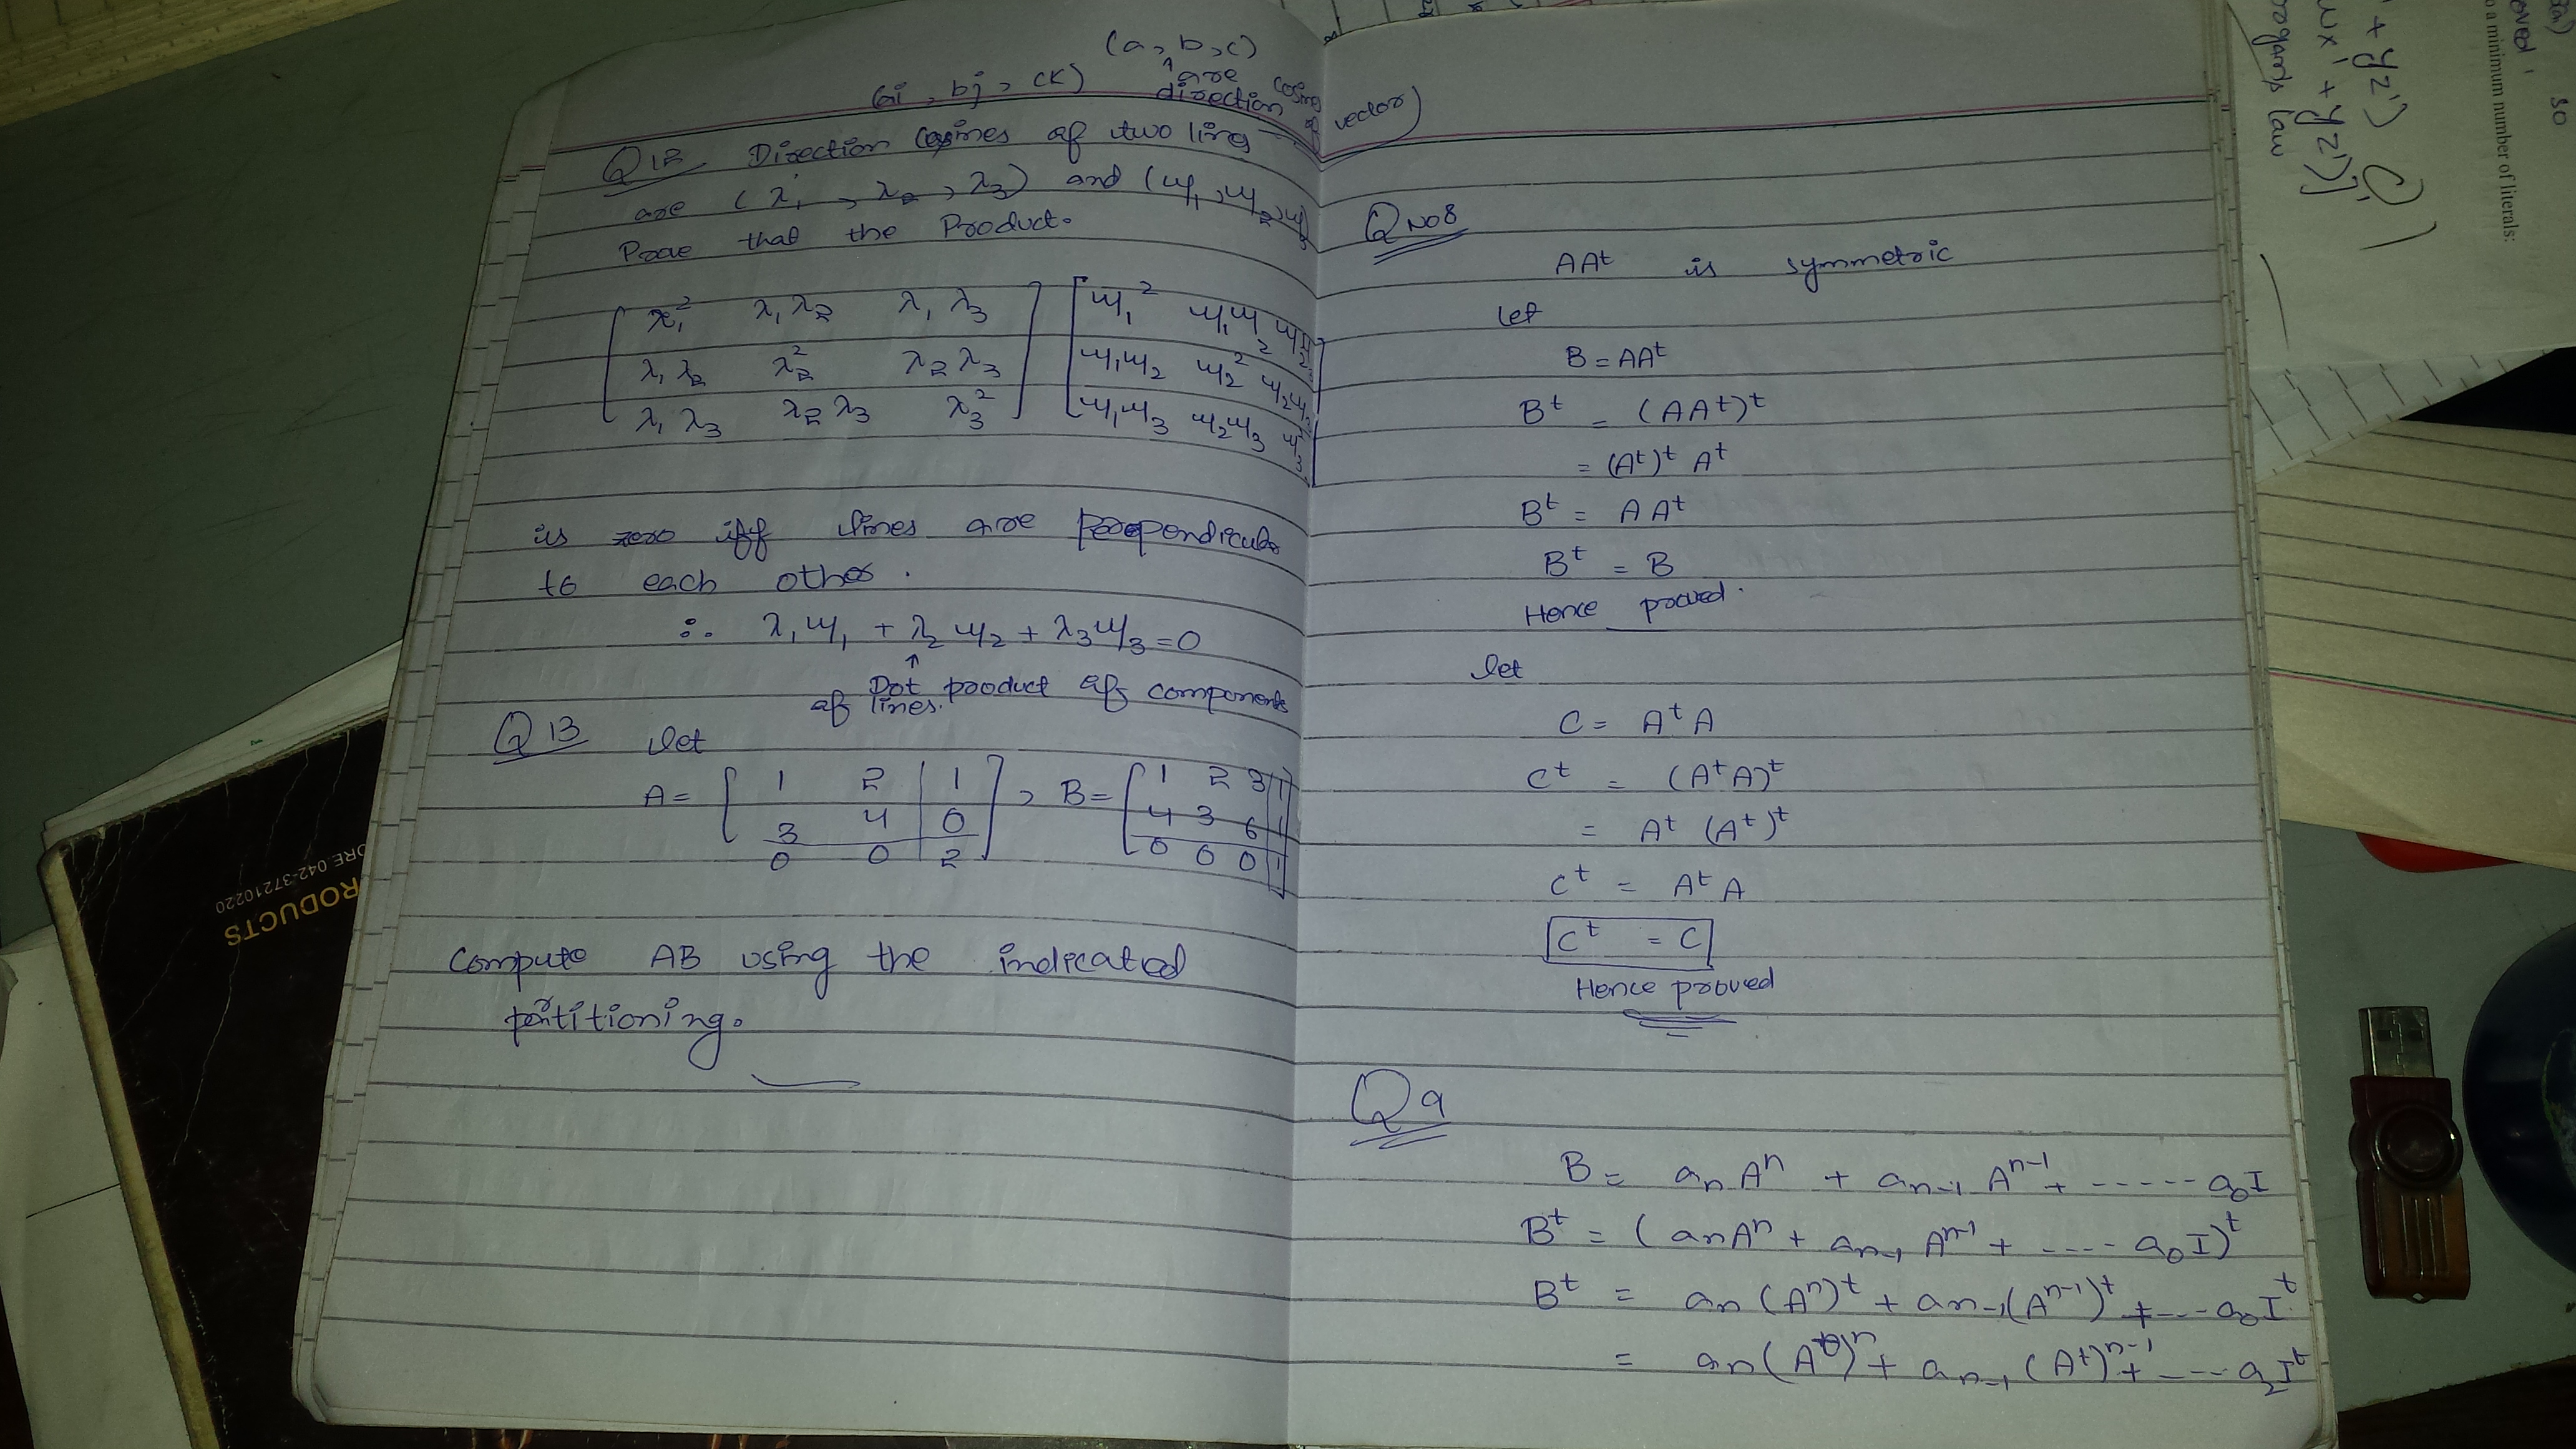 (a, b, c)
↑ are
(ai, bj, ck) direction cosines of vector)
Q12 Direction Cosines of two line
are (λ₁, λ₂, λ₃) and (ψ₁, ψ₂, ψ₃
Prove that the Product.
[ λ₁² λ₁λ₂ λ₁λ₃ ] [ ψ₁² ψ₁ψ₂
λ₁λ₂ λ₂² λ₂λ₃ ψ₁ψ₂ ψ₂² ψ₂ψ₃
λ₁λ₃ λ₂λ₃ λ₃² ψ₁ψ₃ ψ₂ψ₃ ψ₃²
is zero iff lines are perpendicular
to each other.
∴ λ₁ψ₁ + λ₂ψ₂ + λ₃ψ₃ = 0
↑
Dot product of components
of lines.
Q13 let
A = [ 1 2 | 1 ] , B = [ 1 2 3 | 1 ]
3 4 | 0 4 3 6 | 1
0 0 | 2 0 0 0 | 1
Compute AB using the indicated
partitioning.
Q No 8
AAᵗ is symmetric
let
B = AAᵗ
Bᵗ = (AAᵗ)ᵗ
= (Aᵗ)ᵗ Aᵗ
Bᵗ = AAᵗ
Bᵗ = B
Hence proved.
let
C = AᵗA
Cᵗ = (AᵗA)ᵗ
= Aᵗ (Aᵗ)ᵗ
Cᵗ = AᵗA
Cᵗ = C
Hence proved
Q9
B = aₙAⁿ + aₙ₋₁Aⁿ⁻¹ + ------ a₀I
Bᵗ = (aₙAⁿ + aₙ₋₁Aⁿ⁻¹ + ---- a₀I)ᵗ
Bᵗ = aₙ(Aⁿ)ᵗ + aₙ₋₁(Aⁿ⁻¹)ᵗ + --- a₀Iᵗ
= aₙ(Aᵗ)ⁿ + aₙ₋₁(Aᵗ)ⁿ⁻¹ + ---- a₂Iᵗ
RODUCTS
ORE 042-37210220
+ yz')
wx' + yz')]'
rogans law
oved, so
o a minimum number of literals: